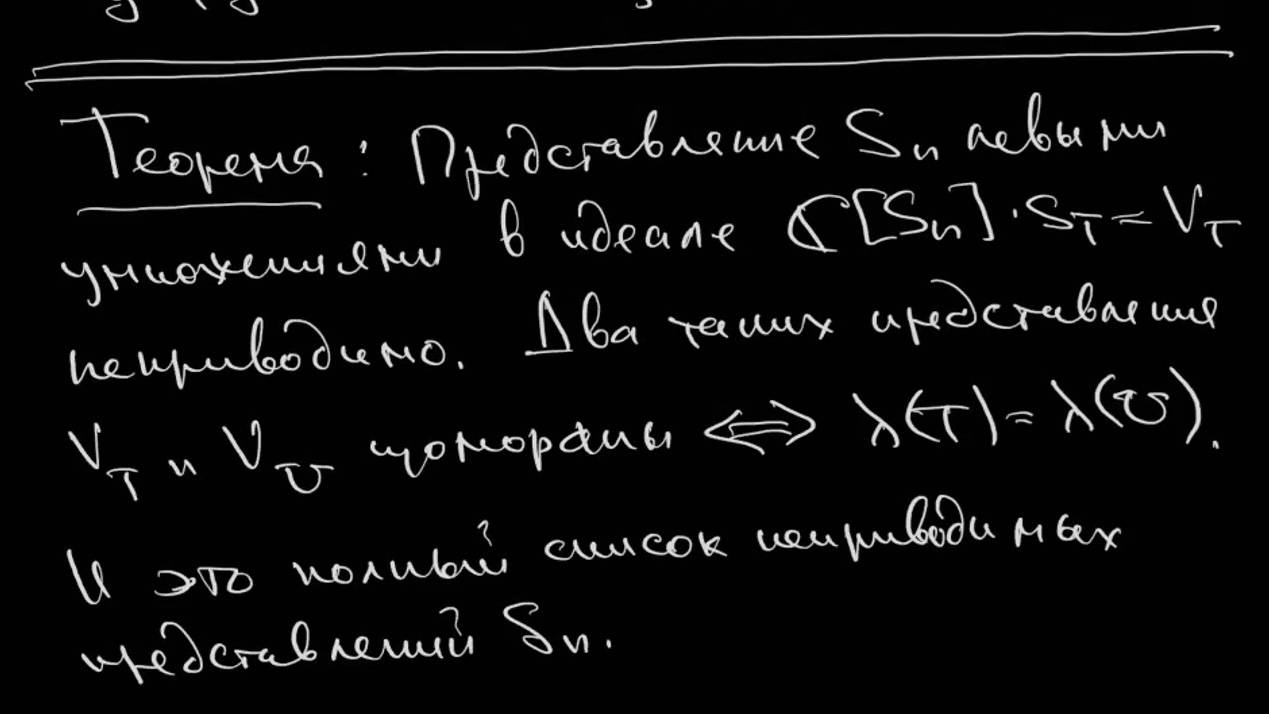 Теорема: Представление Sₙ левыми
умножениями в идеале ℂ[Sₙ]·S_T = V_T
неприводимо. Два таких представления
V_T и V_U изоморфны ⇔ λ(T) = λ(U).
И это полный список неприводимых
представлений Sₙ.